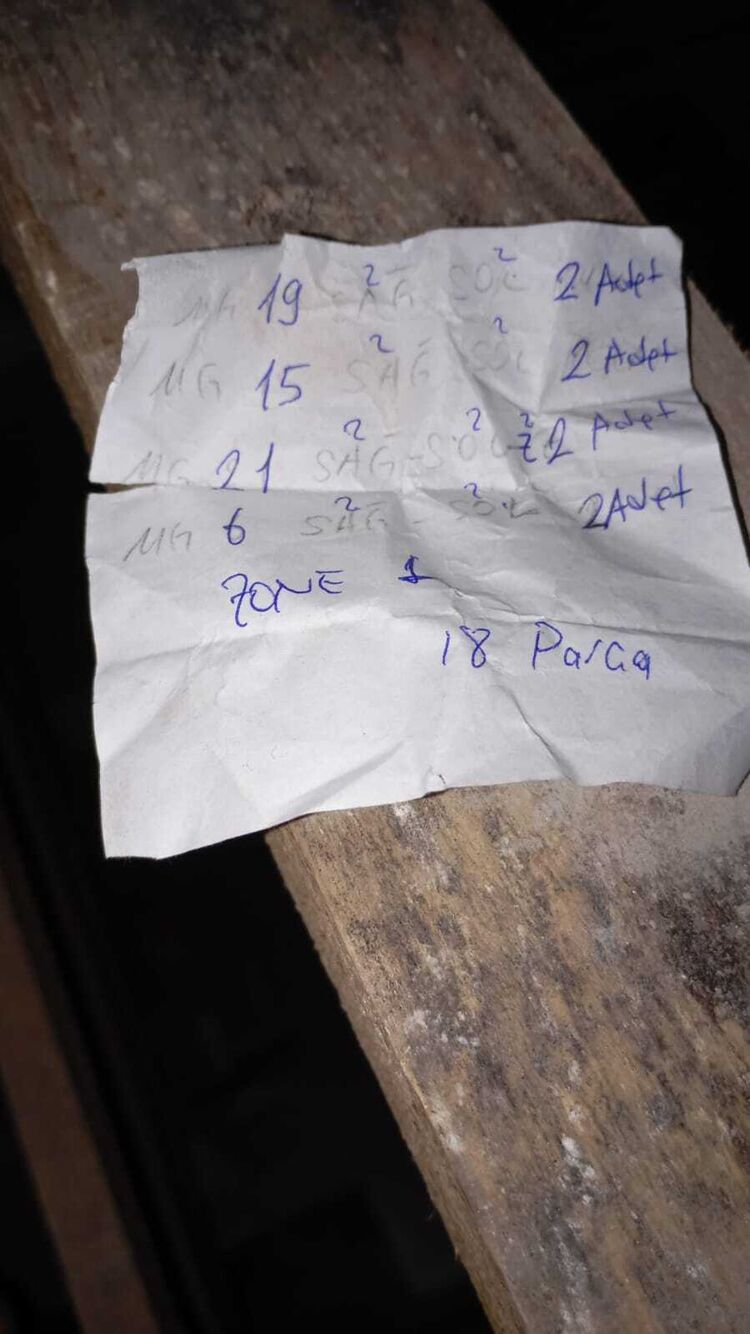 MG 19 SAĞ 2 SOL 2 2 Adet
MG 15 SAĞ 2 SOL 2 2 Adet
MG 21 SAĞ 2 - SOL 2 2 Adet
MG 6 SAĞ 2 - SOL 2 2 Adet
ZONE 1
18 Parça